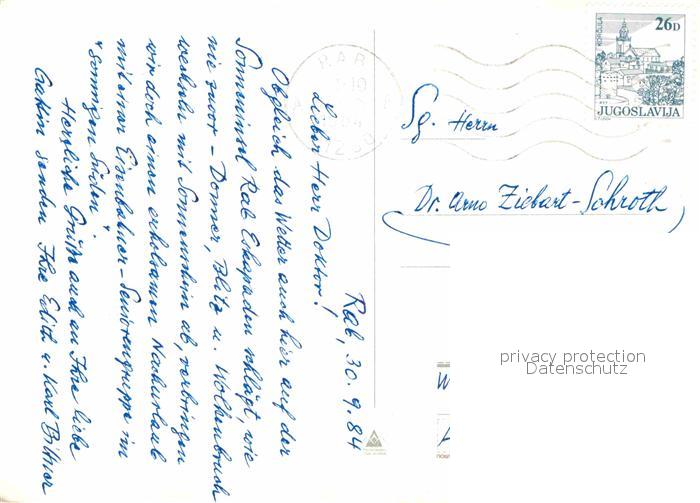 Rab, 30.9.84
Lieber Herr Doktor!
Obgleich das Wetter auch hier auf der
Sonneninsel Rab Eskapaden schlägt, wie
nie zuvor - Donner, Blitz u. Wolkenbruch
wechseln mit Sonnenschein ab, verbringen
wir doch einen erholsamen Nachurlaub
mit einer Eisenbahner-Seniorengruppe im
"sonnigen Süden"
Herzliche Grüße auch an Ihre liebe
Gattin senden Ihre Edith u. Karl Bittner
RAB
KORČULA
26D
JUGOSLAVIJA
Sg. Herrn
Dr. Arno Ziebart-Schroth
privacy protection
Datenschutz